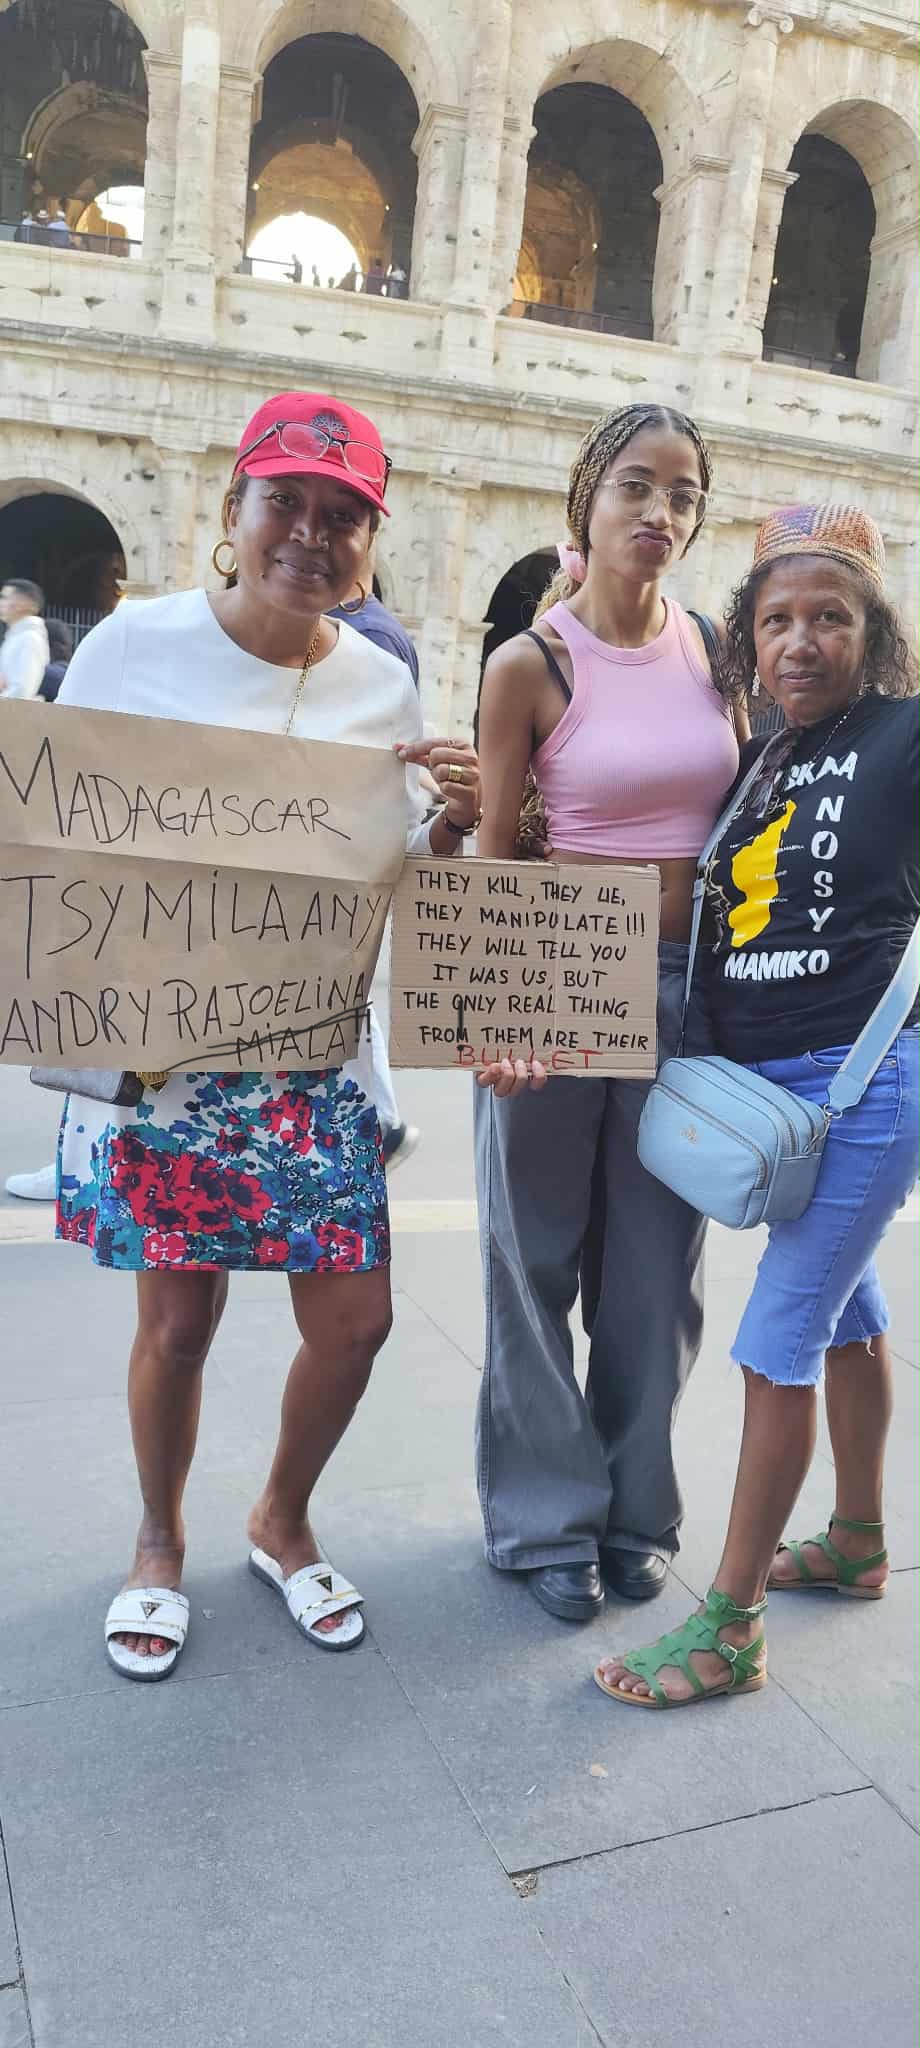 MADAGASCAR
TSY MILA ANY
ANDRY RAJOELINA
MIALA!!
THEY KILL, THEY LIE,
THEY MANIPULATE!!!
THEY WILL TELL YOU
IT WAS US, BUT
THE ONLY REAL THING
FROM THEM ARE THEIR
BULLET
NOSY
MAMIKO